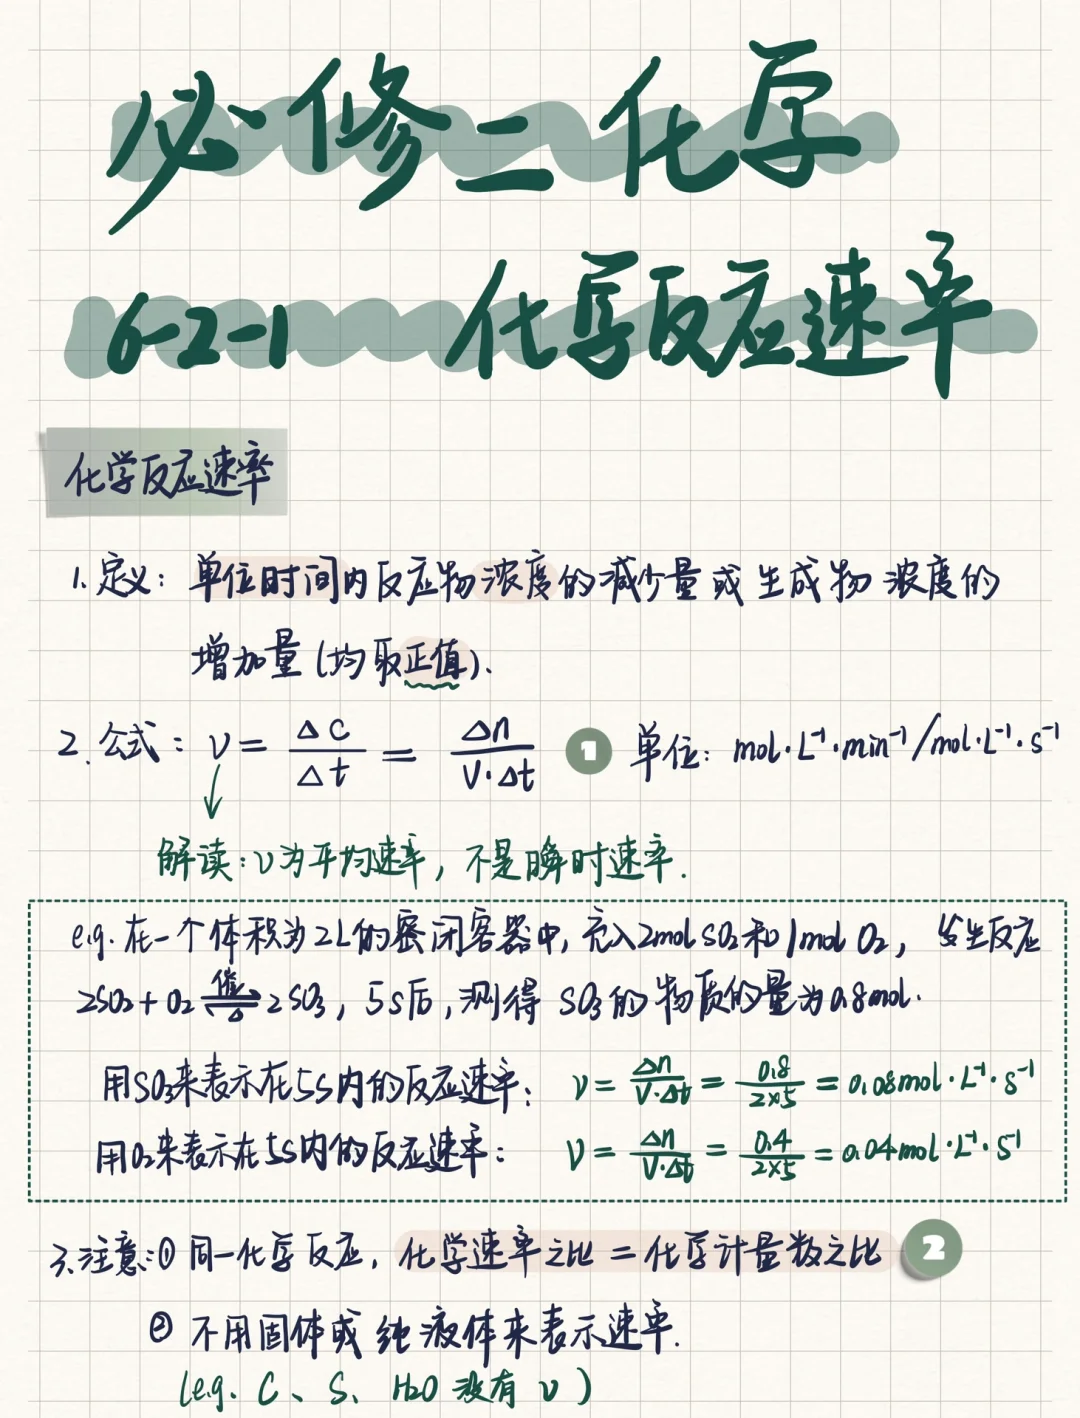 必修二化学
6-2-1 化学反应速率
化学反应速率
1. 定义: 单位时间内反应物浓度的减少量或生成物浓度的
增加量(均取正值).
2. 公式: v = Δc/Δt = Δn/V·Δt 1 单位: mol·L⁻¹·min⁻¹/mol·L⁻¹·s⁻¹
解读: v为平均速率, 不是瞬时速率.
e.g. 在一个体积为2L的密闭容器中, 充入2mol SO₂和1mol O₂, 发生反应
2SO₂ + O₂ ⇌(催/Δ) 2SO₃, 5s后, 测得 SO₃的物质的量为0.8mol.
用SO₃来表示在5s内的反应速率: v = Δn/V·Δt = 0.8/2×5 = 0.08mol·L⁻¹·s⁻¹
用O₂来表示在5s内的反应速率: v = Δn/V·Δt = 0.4/2×5 = 0.04mol·L⁻¹·s⁻¹
3. 注意: ① 同一化学反应, 化学速率之比 = 化学计量数之比 2
② 不用固体或纯液体来表示速率.
(e.g. C、S、H₂O 没有 v)